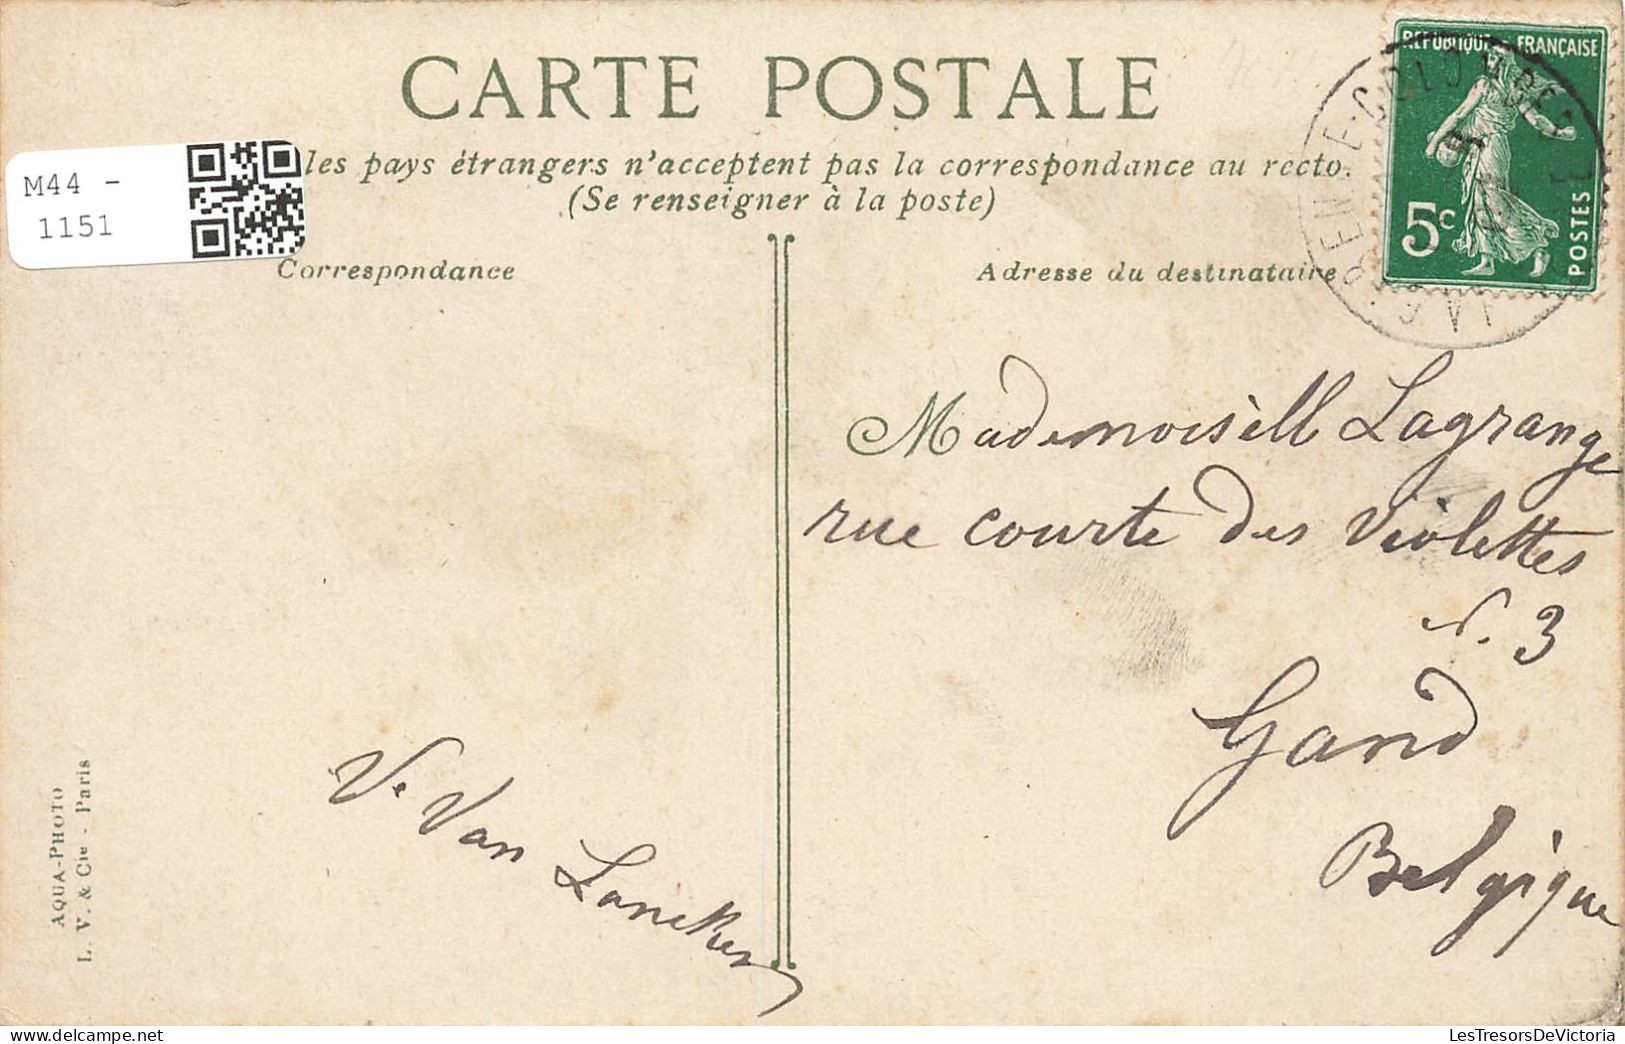 CARTE POSTALE
les pays étrangers n'acceptent pas la correspondance au recto.
(Se renseigner à la poste)
M44 -
1151
Correspondance
Adresse du destinataire
REPUBLIQUE FRANÇAISE
5c
POSTES
LA GARENNE-COLOMBES
Mademoisell Lagrange
rue courte des Violettes
N. 3
Gand
Belgique
Ve Van
AQUA-PHOTO
L. V. & Cie - Paris
LesTresorsDeVictoria